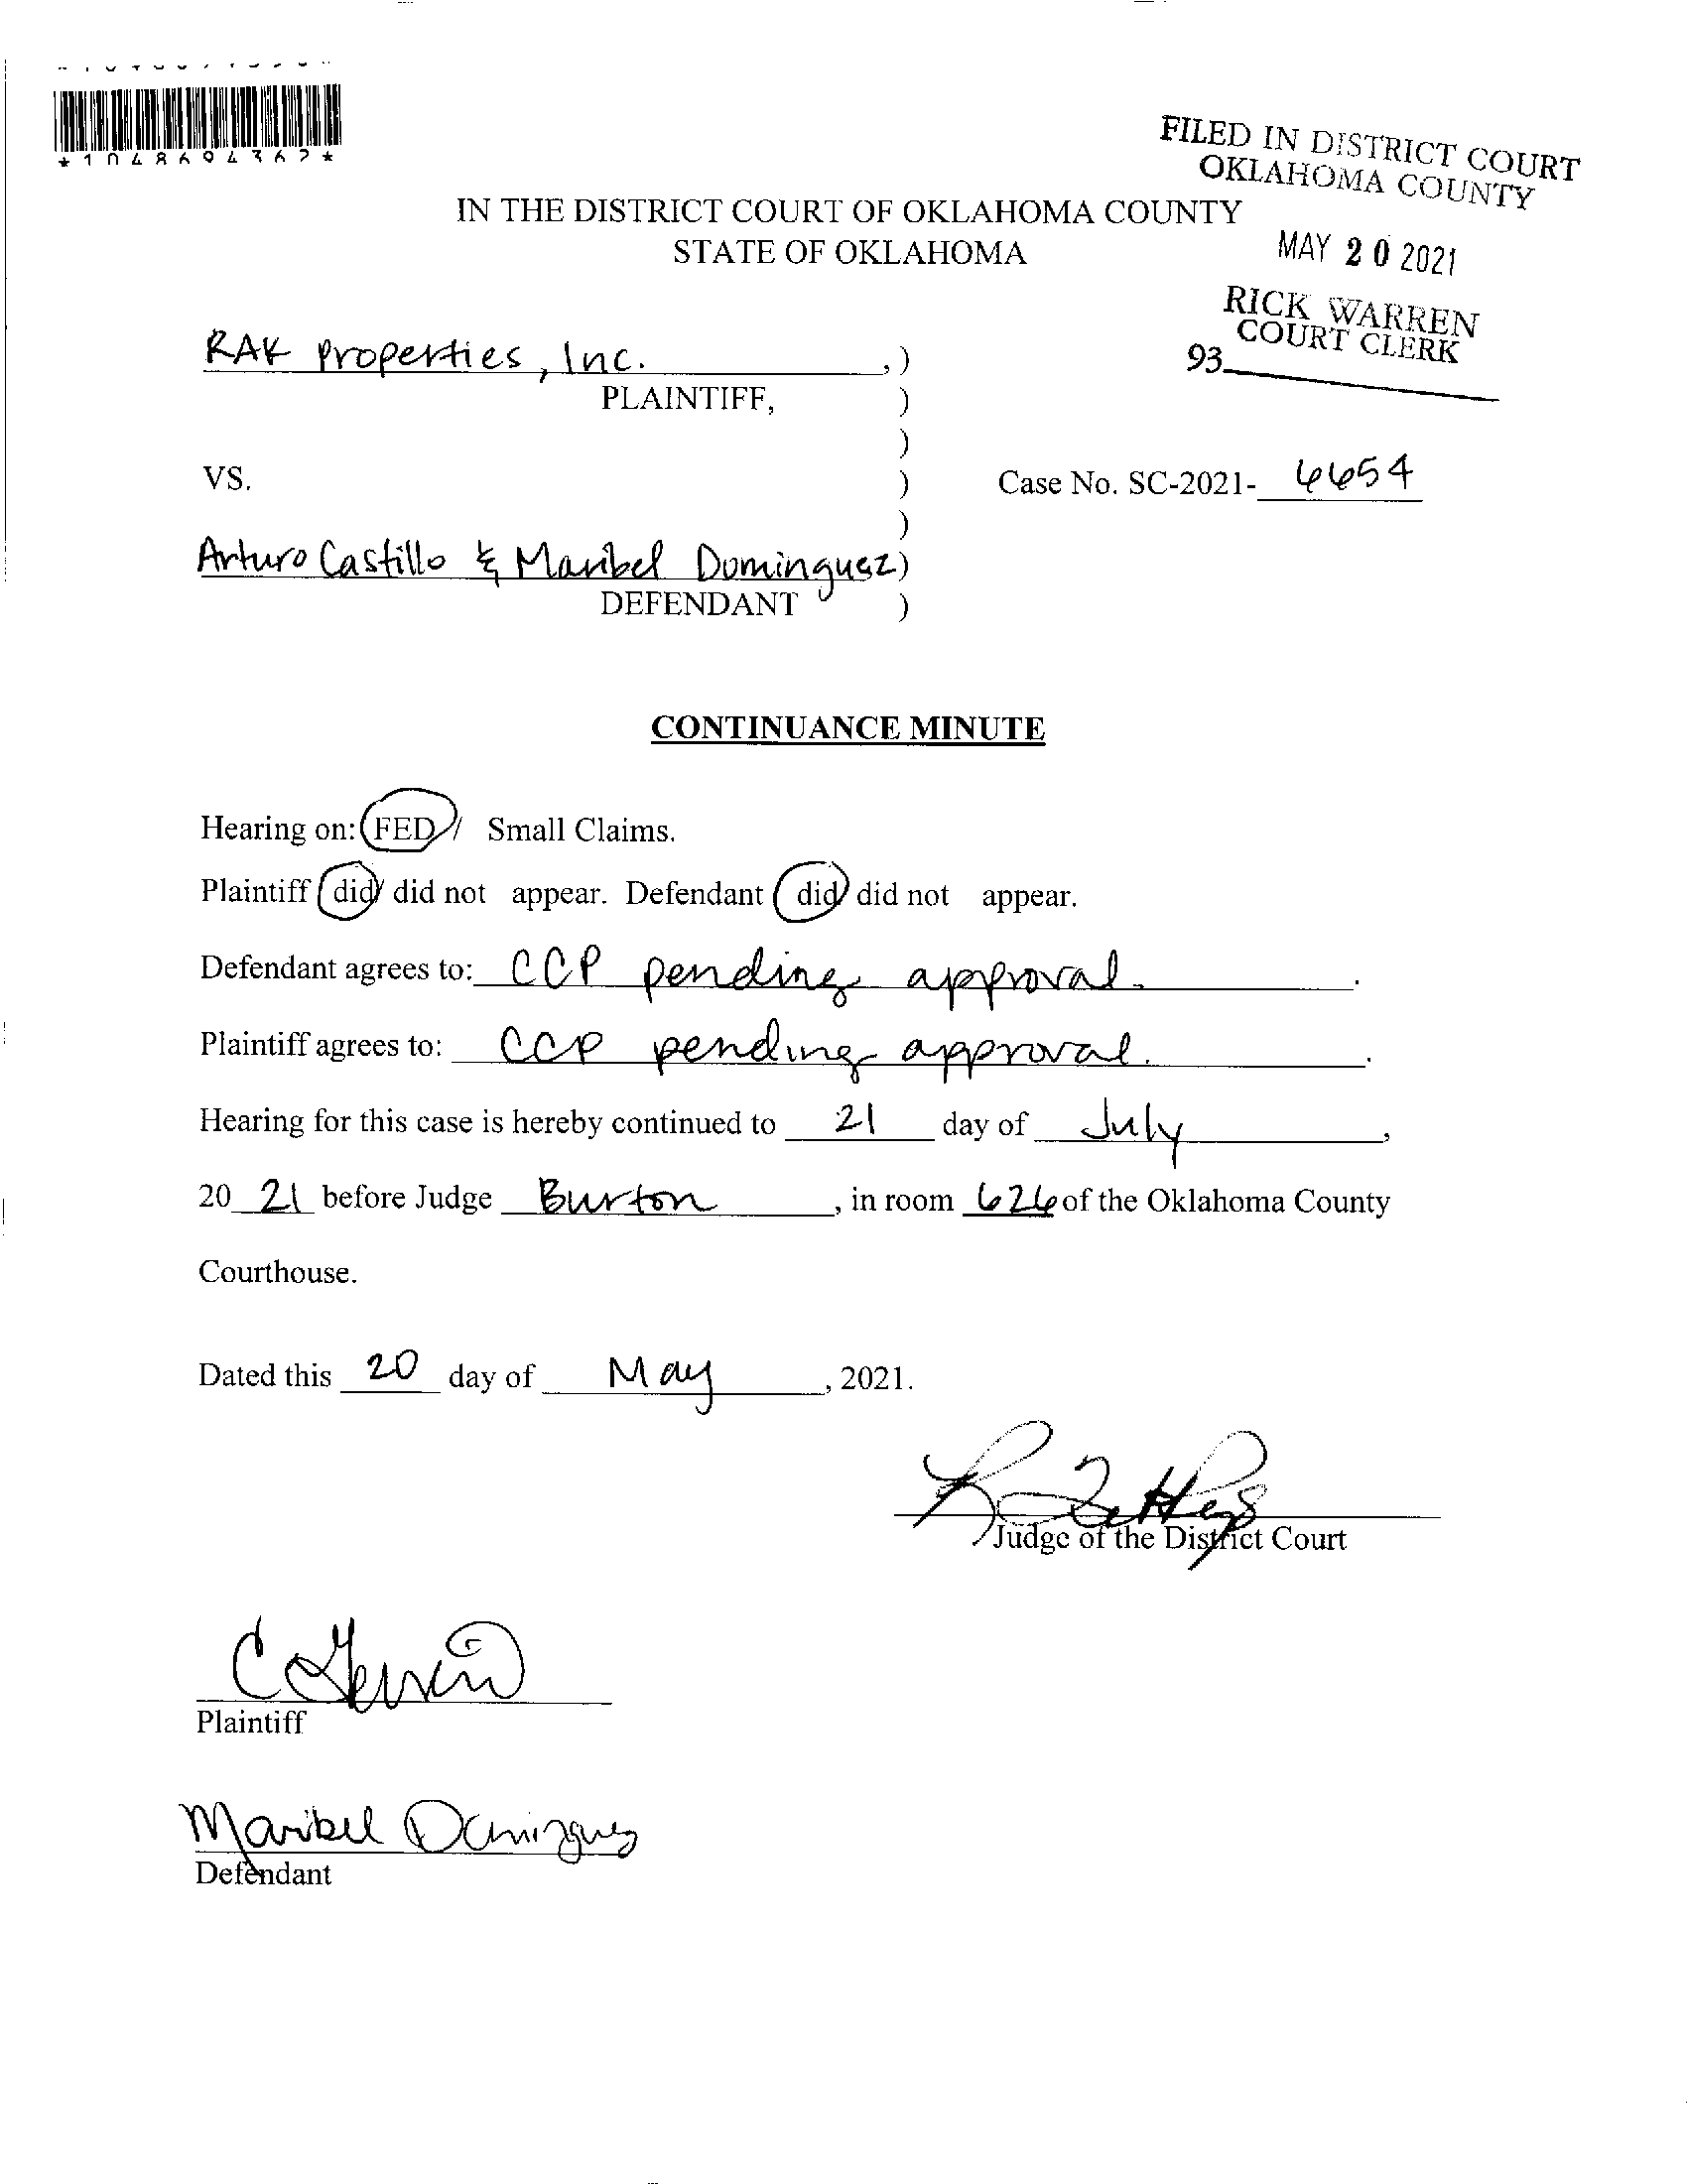 *1048694362*
FILED IN DISTRICT COURT
OKLAHOMA COUNTY
IN THE DISTRICT COURT OF OKLAHOMA COUNTY
STATE OF OKLAHOMA
MAY 20 2021
RICK WARREN
COURT CLERK
93
RAK Properties, Inc. ,)
PLAINTIFF, )
)
VS. ) Case No. SC-2021- 6654
)
Arturo Castillo & Maribel Dominguez )
DEFENDANT )
CONTINUANCE MINUTE
Hearing on: FED / Small Claims.
Plaintiff did/ did not appear. Defendant did/ did not appear.
Defendant agrees to: CCP pending approval. .
Plaintiff agrees to: CCP pending approval. .
Hearing for this case is hereby continued to 21 day of July ,
20 21 before Judge Burton , in room 626 of the Oklahoma County
Courthouse.
Dated this 20 day of May , 2021.
Judge of the District Court
Plaintiff
Maribel Dominguez
Defendant